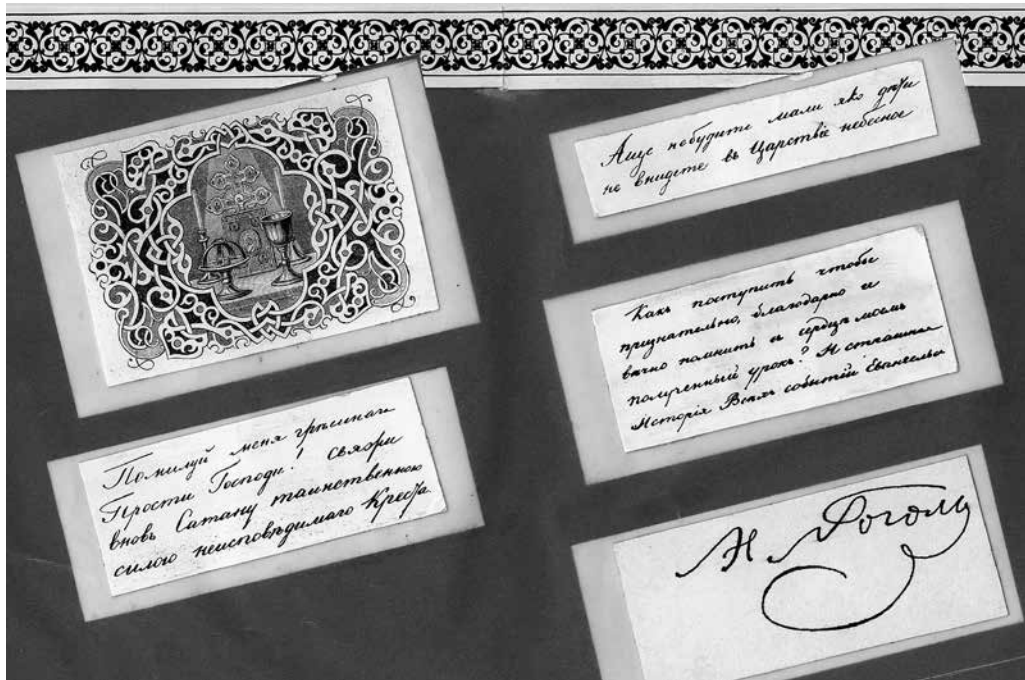 Помилуй меня грѣшнаго
Прости Господи! свяжи
вновь Сатану таинственною
силою неисповѣдимаго Креста
Аще небудите мали яко дѣти
не внидете въ Царствіе небесное
Какъ поступить чтобы
признательно, благодарно и
вѣчно помнить въ сердцѣ моемъ
полученный урокъ? И страшная
Исторія Всѣхъ событій Евангельск
Н. Гоголь